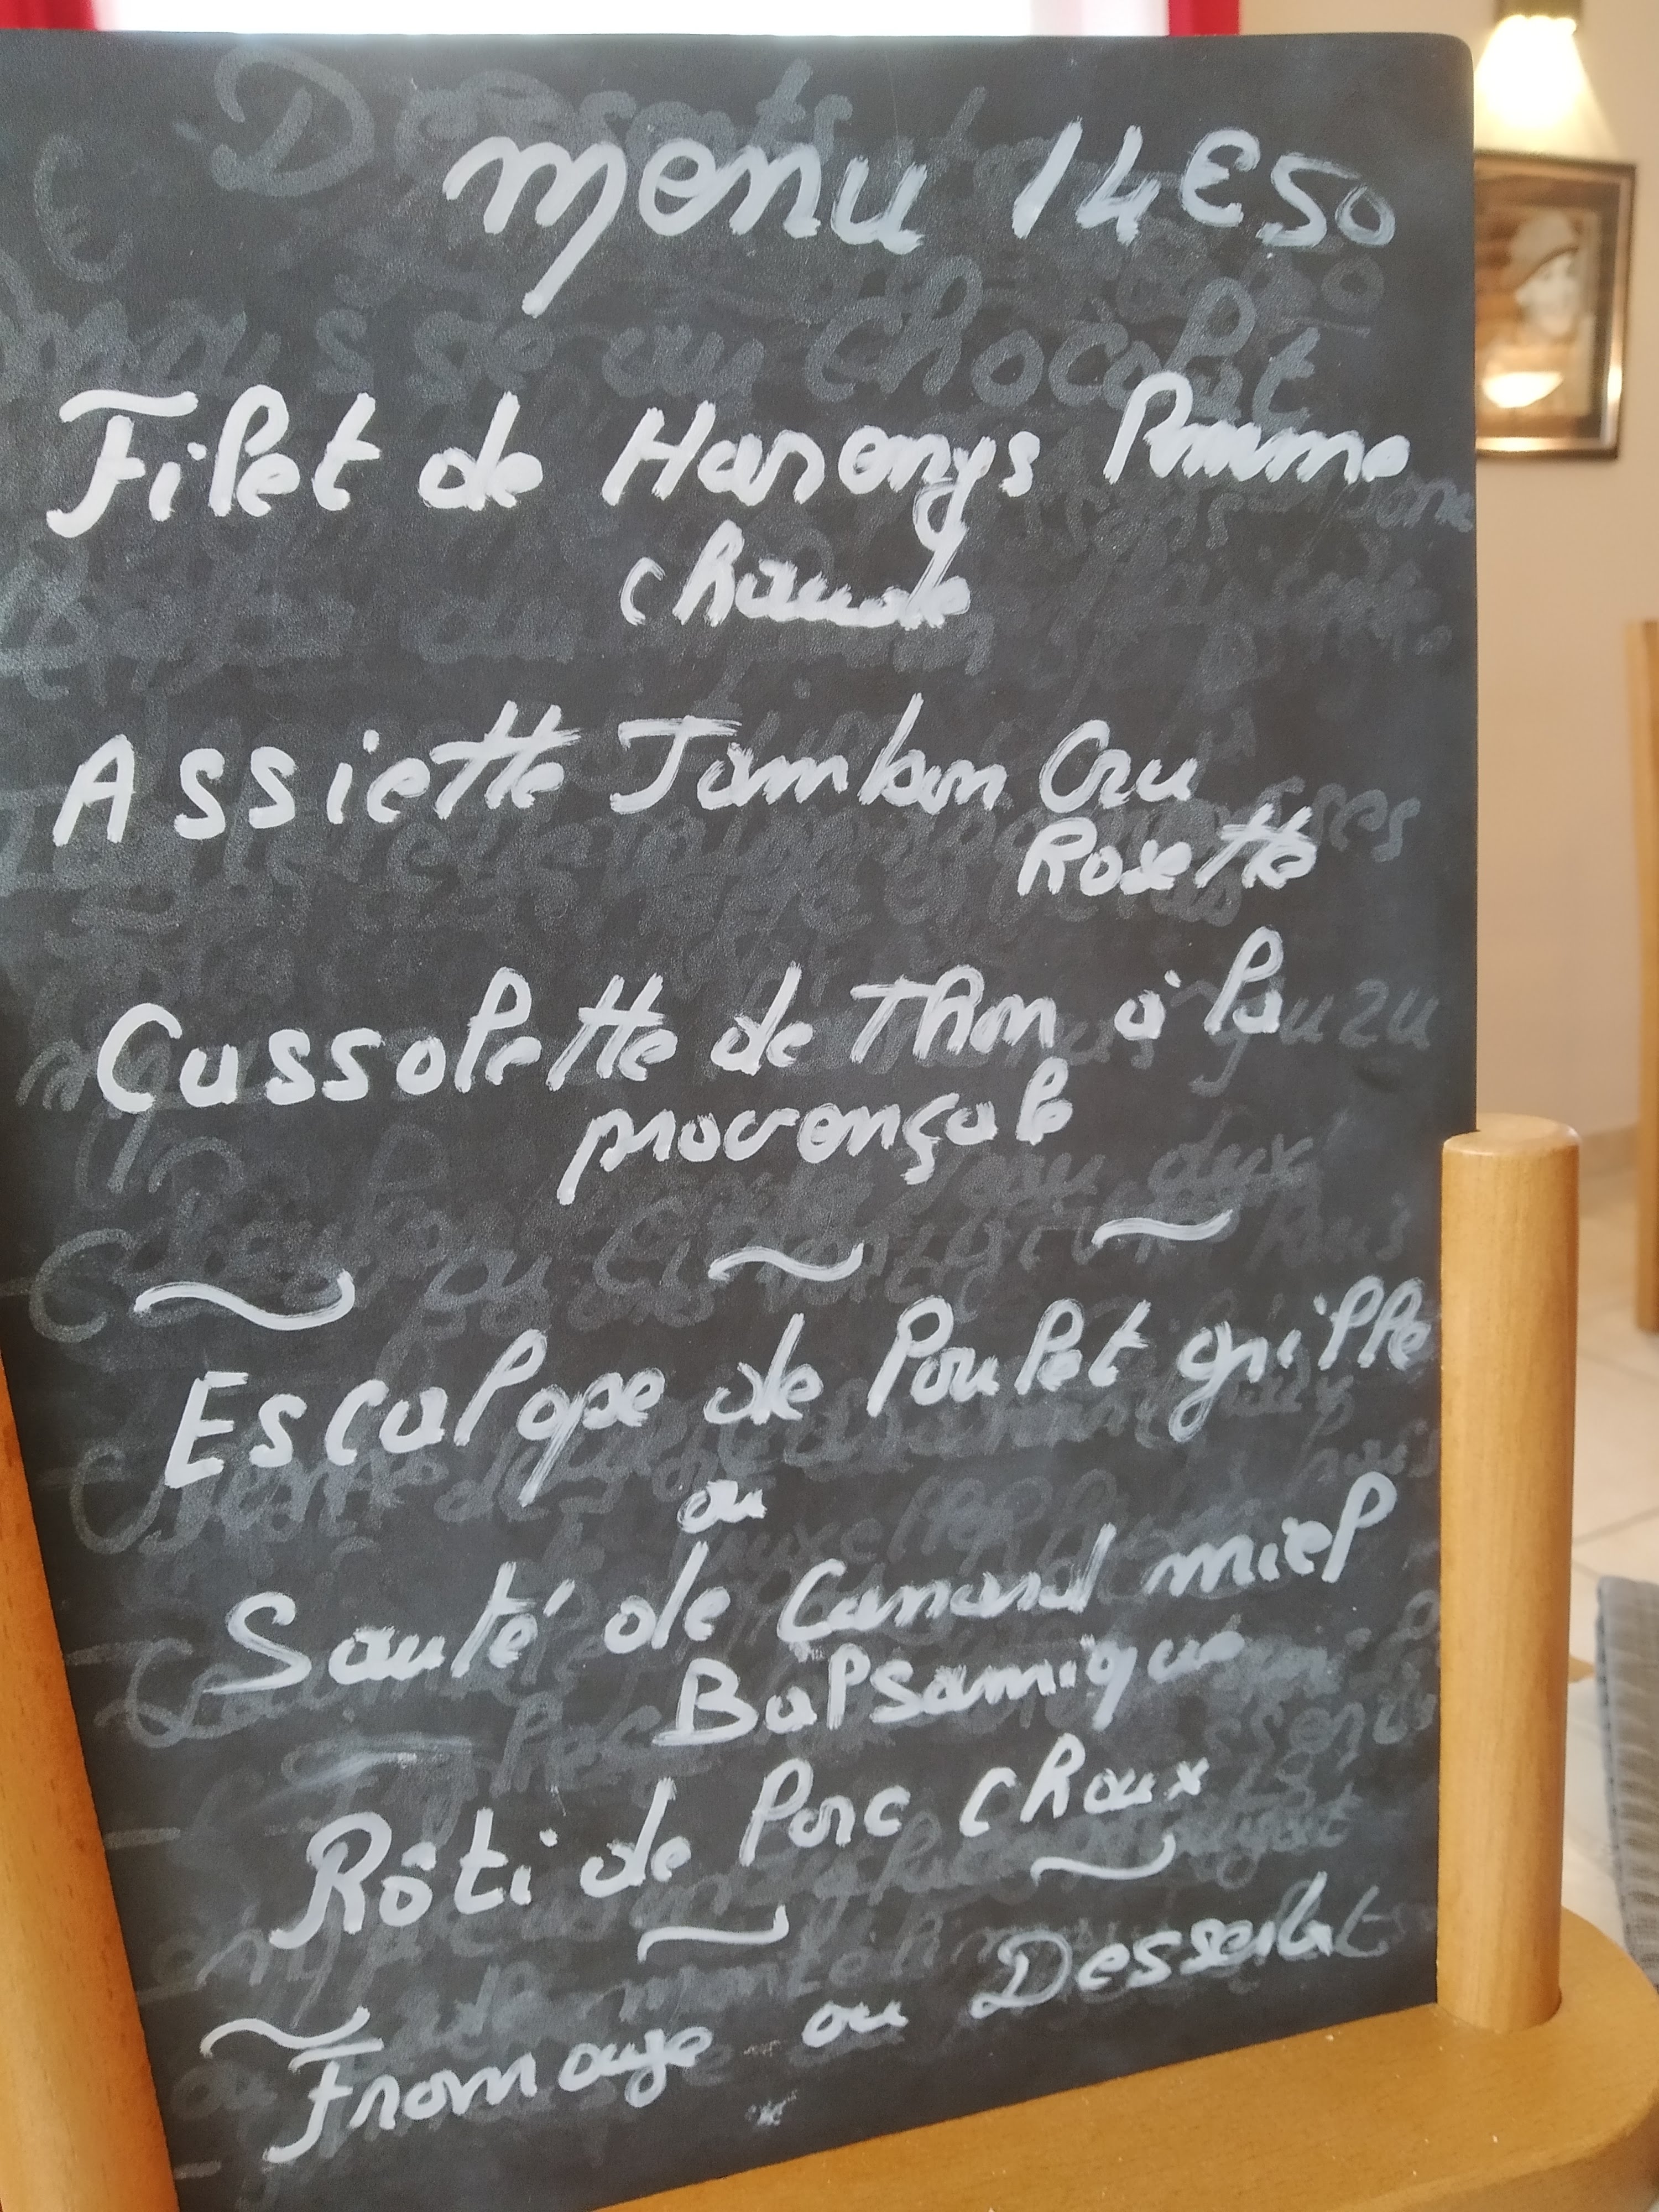 menu 14€50
Filet de Harengs Pomme
chaude
Assiette Jambon Cru
Rosette
Cassolette de Thon à la
provençale
~ ~ ~
Escalope de Poulet grillé
ou
Sauté de Canard miel
Balsamique
Rôti de Porc choux
~ ~ ~
Fromage ou Dessert